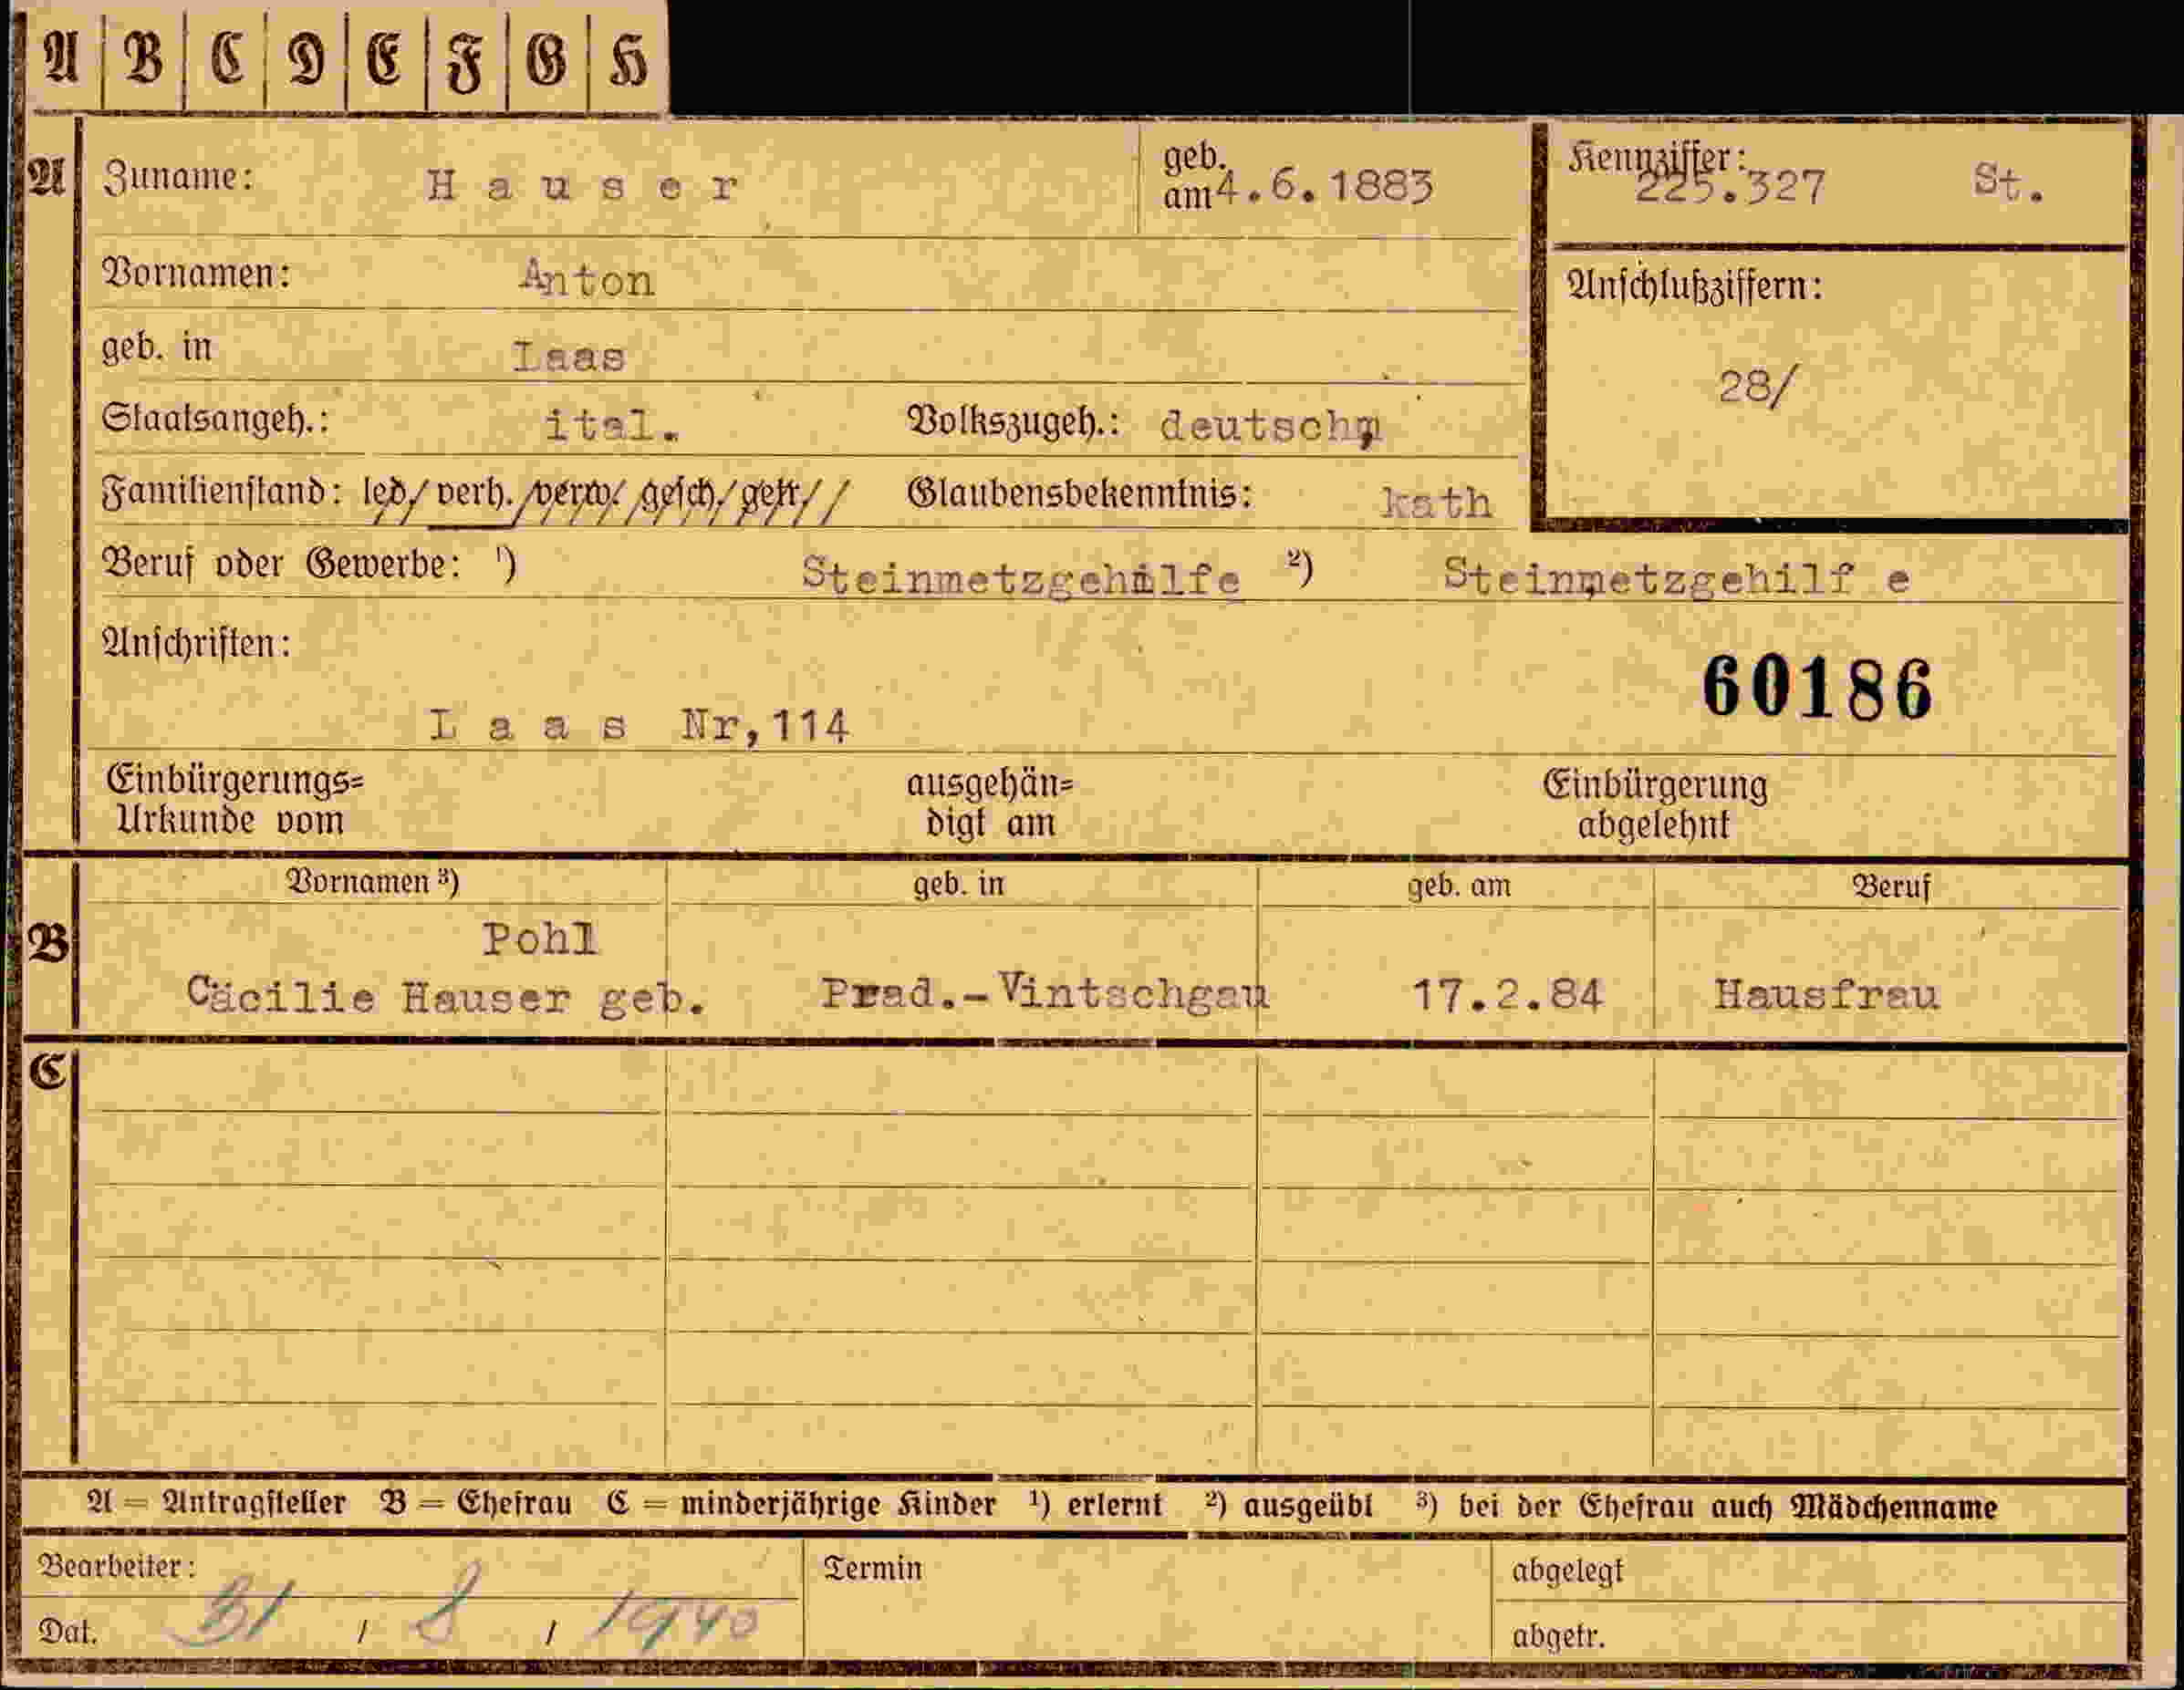 A B C D E F G H
A Zuname: Hauser geb. am 4.6.1883 Kennziffer: 225.327 St.
Vornamen: Anton Anschlußziffern:
geb. in Laas 28/
Staatsangeh.: ital. Volkszugeh.: deutsch
Familienstand: led/ verh. /verw/ gesch/ getr// Glaubensbekenntnis: kath
Beruf oder Gewerbe: ¹) Steinmetzgehilfe ²) Steinmetzgehilf e
Anschriften:
60186
Laas Nr,114
Einbürgerungs= Urkunde vom ausgehän= digt am Einbürgerung abgelehnt
Vornamen ³) geb. in geb. am Beruf
B Pohl
Cäcilie Hauser geb. Prad.-Vintschgau 17.2.84 Hausfrau
C
A = Antragsteller B = Ehefrau C = minderjährige Kinder ¹) erlernt ²) ausgeübt ³) bei der Ehefrau auch Mädchenname
Bearbeiter: Termin abgelegt
Dat. 31 / 8 / 1940 abgetr.